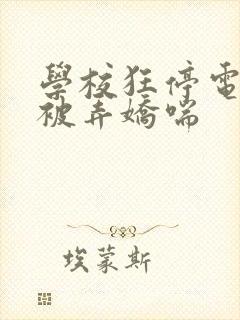 學校狂停電
被弄嬌喘
埃蒙斯